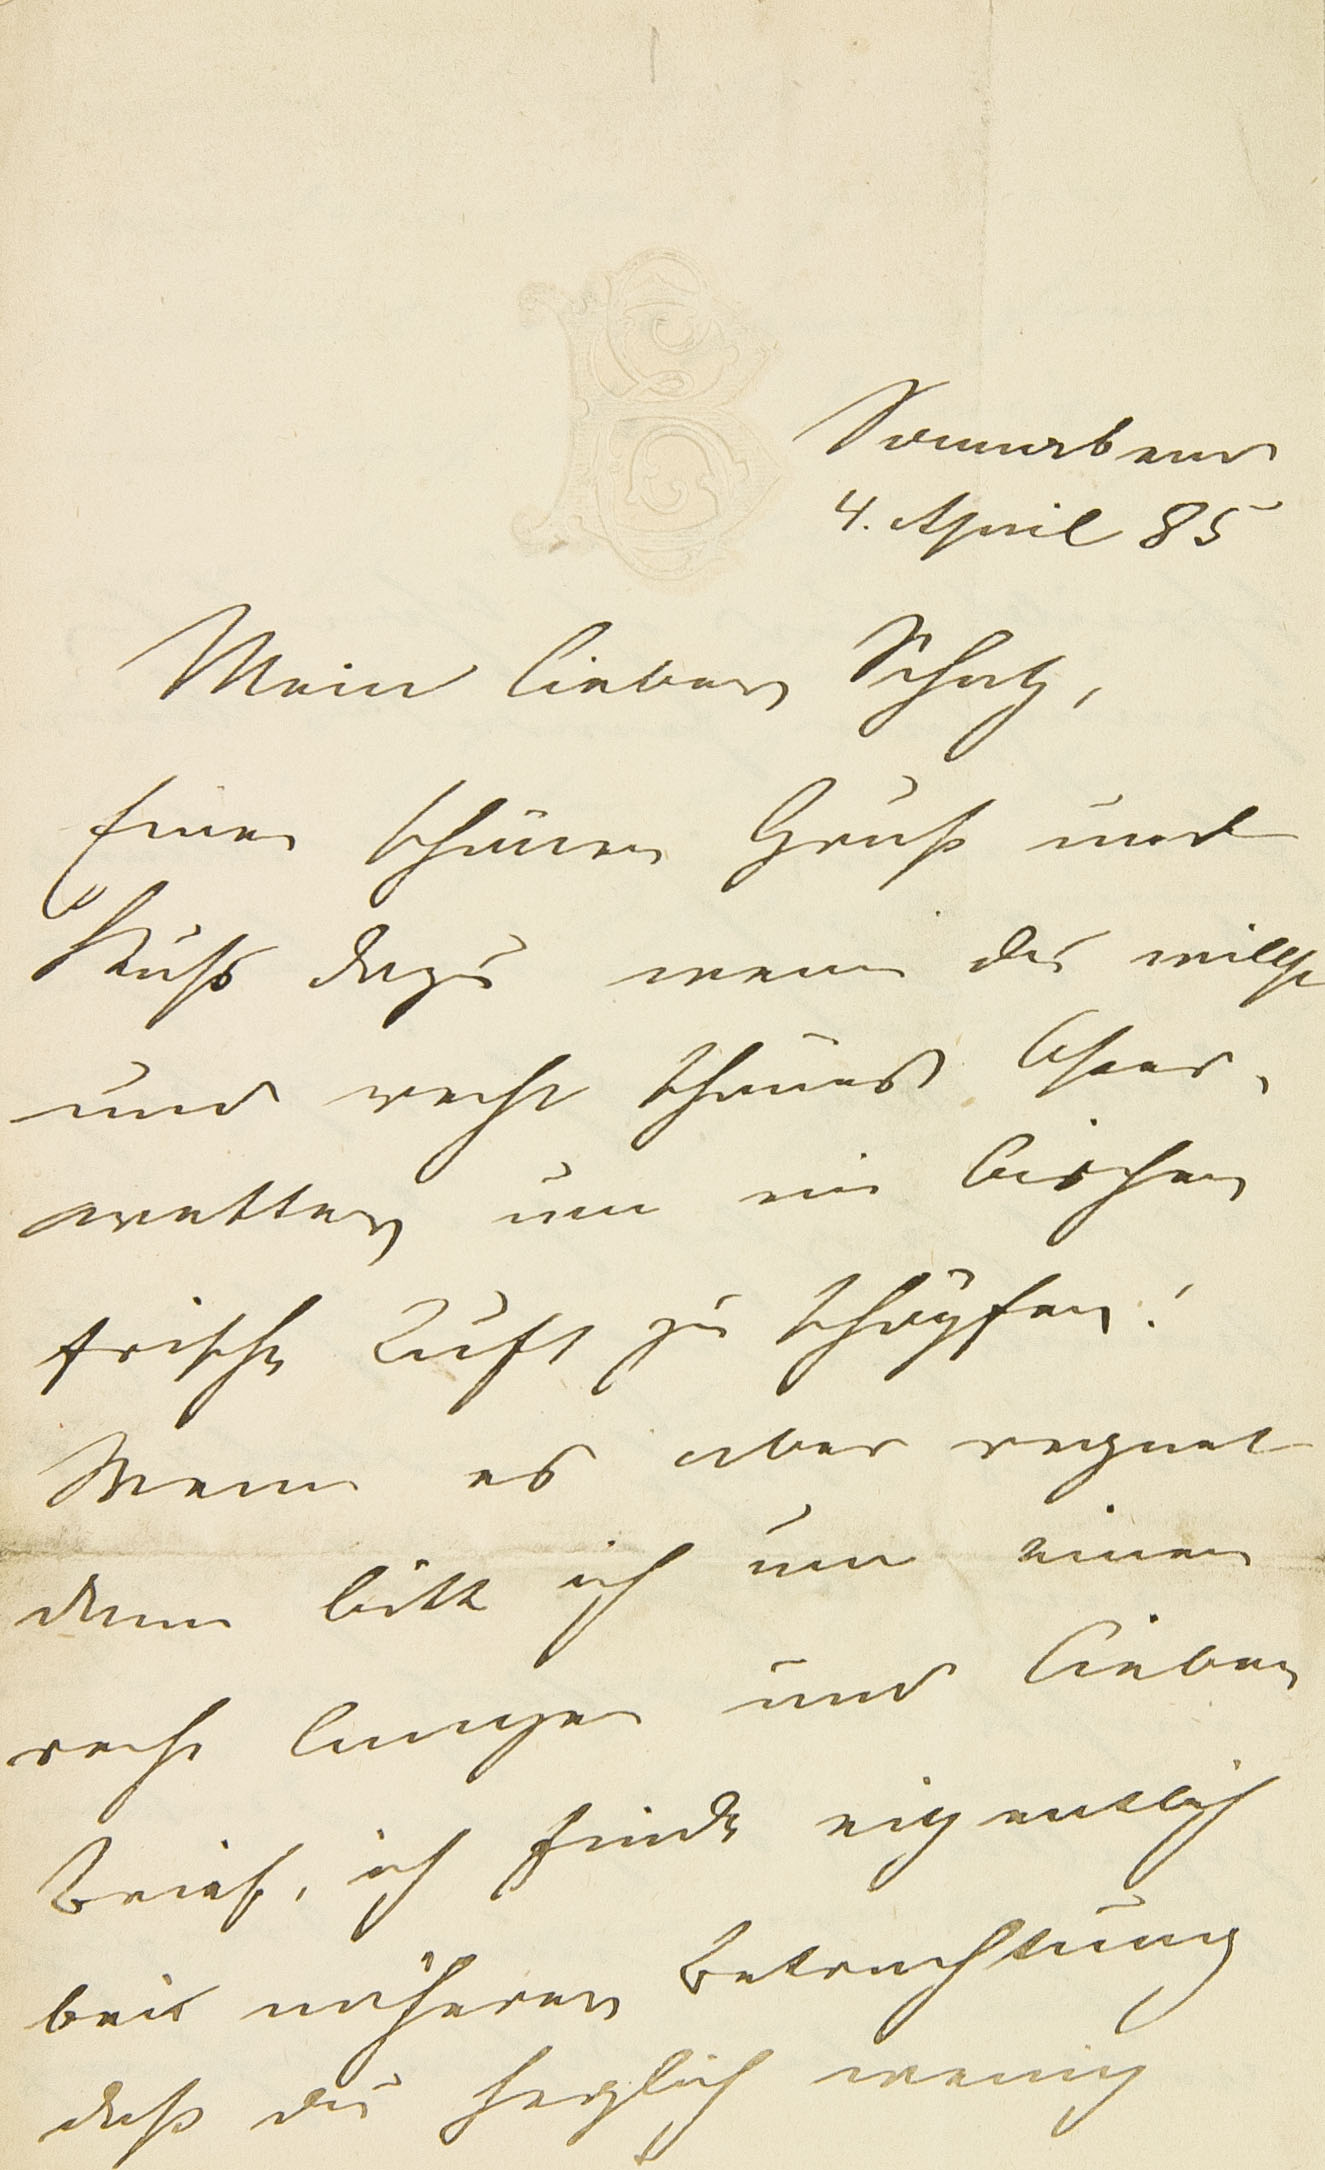 B
Sonnabend
4. April 85
Mein lieber Schatz,
Einen schönen Gruß und
Kuß dazu wenn du willst
und recht schönes Oster,
wetter um ein bischen
frische Luft zu schöpfen!
Wenn es aber regnet
dann bitt ich um einen
recht langen und lieben
Brief, ich finde eigentlich
bei näherer Betrachtung
daß du herzlich wenig